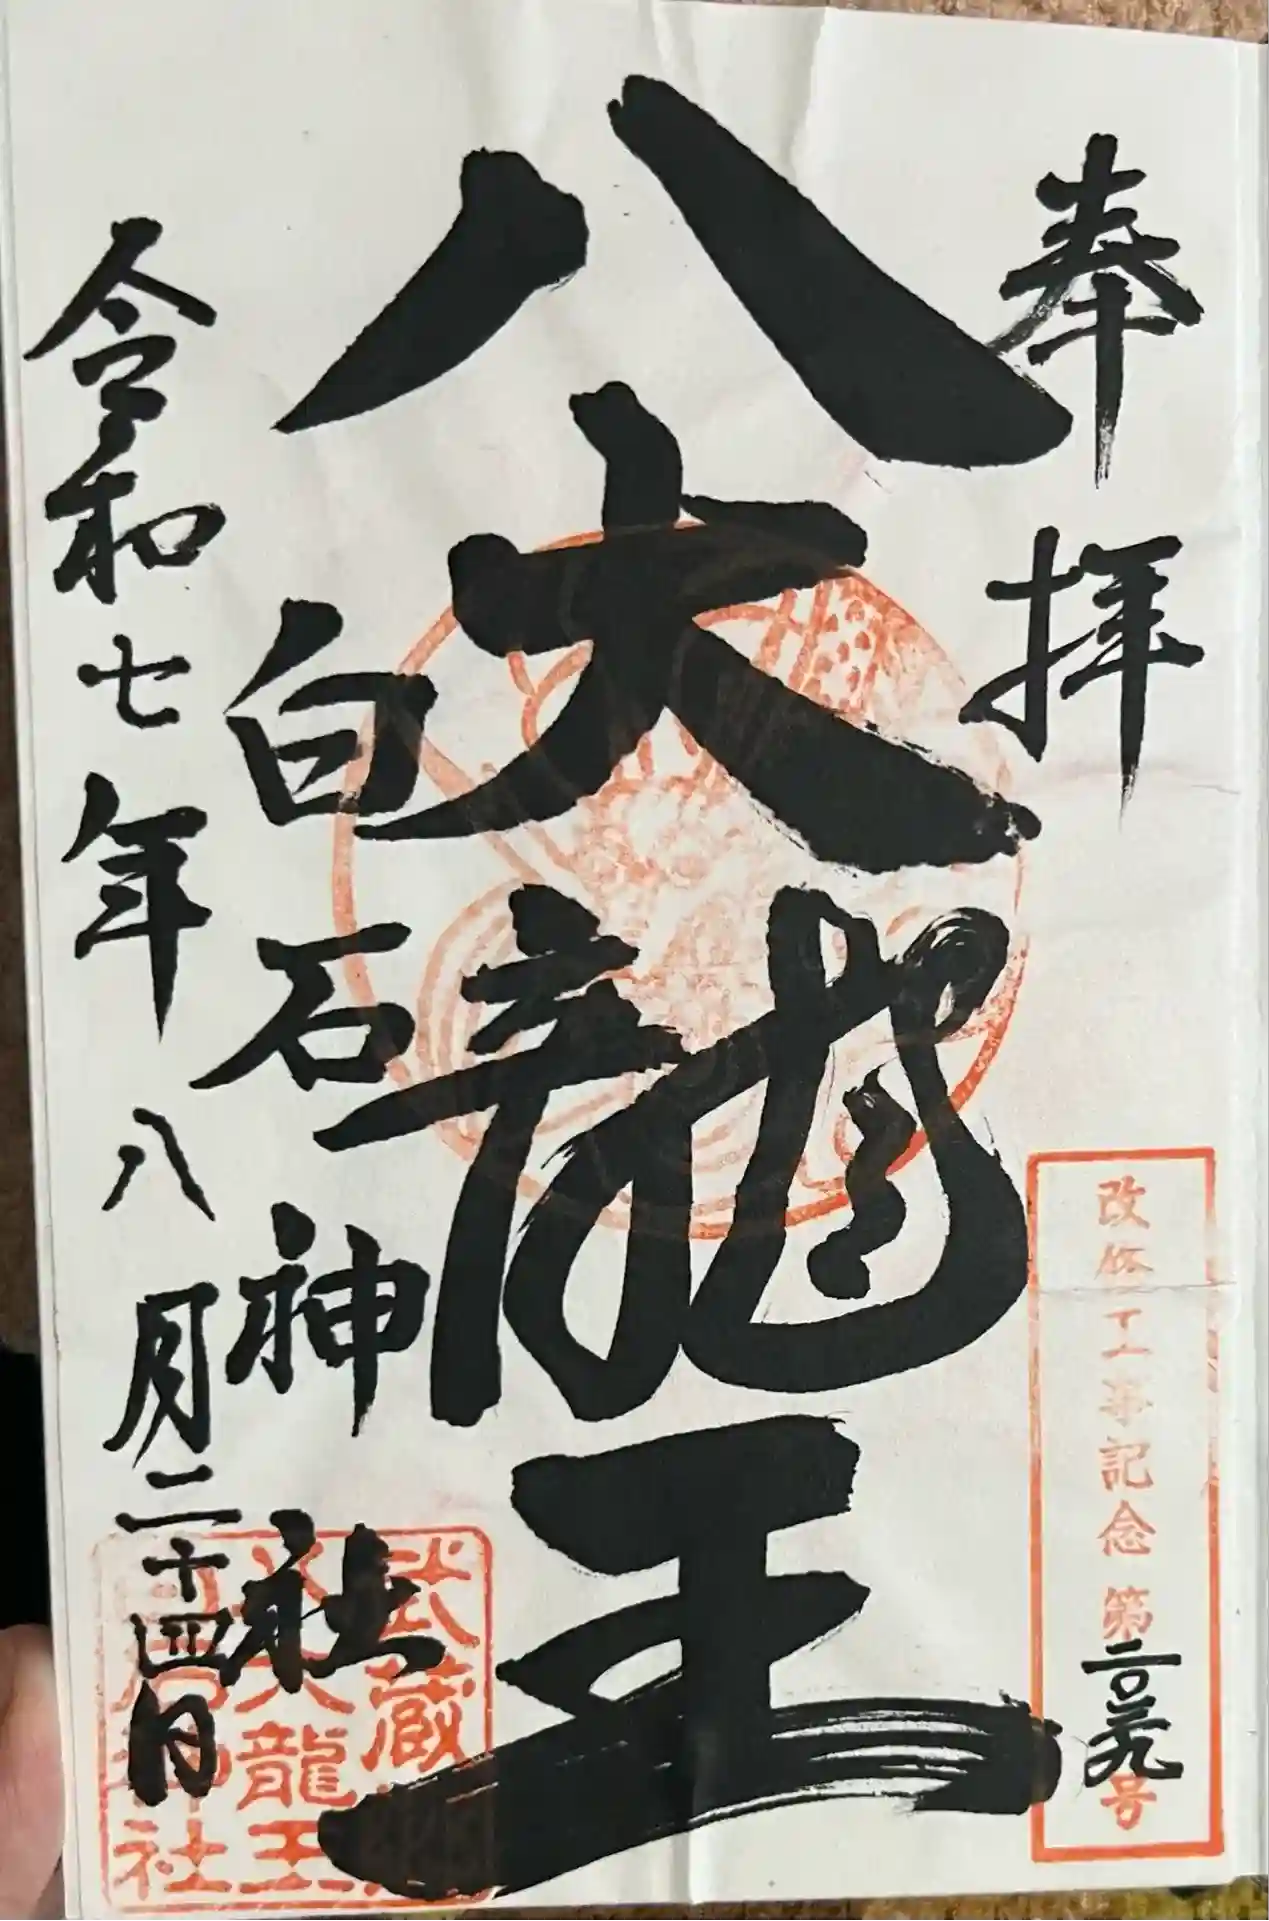 奉拝
改修工事記念 第二〇三九号
八大龍王
白石神社
令和七年八月二十四日
武蔵
八大龍王
白石神社